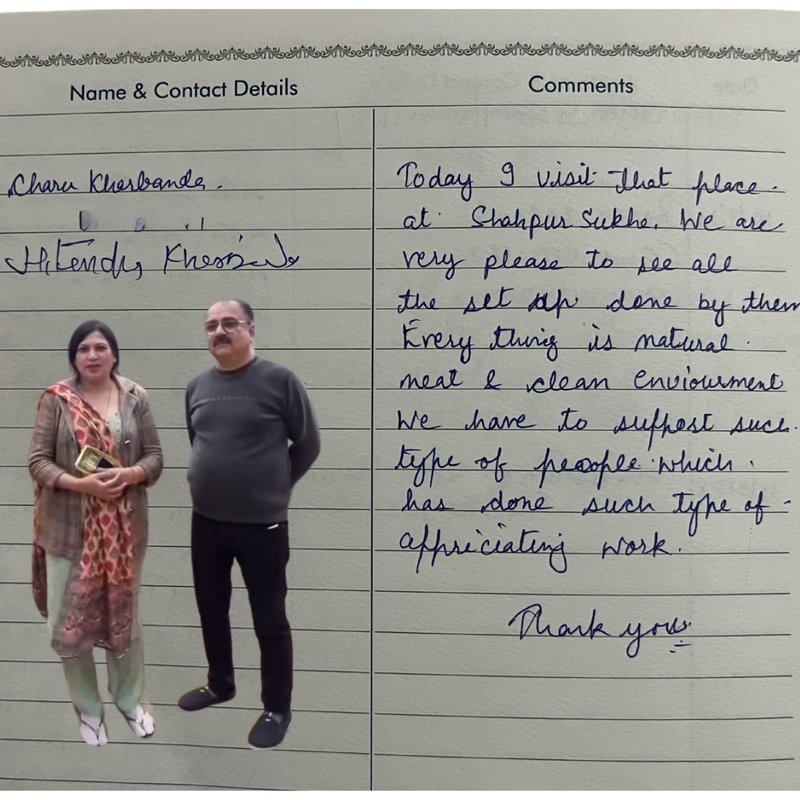 Name & Contact Details
Comments
Charu Kherbanda.
Hitendra
Today I visit that place.
at Shahpur Sukha. We are
very please to see all
the set up done by them
Every thing is natural.
neat & clean enviourment
We have to suppost suce.
type of peaople which.
has done such type of-
appriciating work.
Thank you.